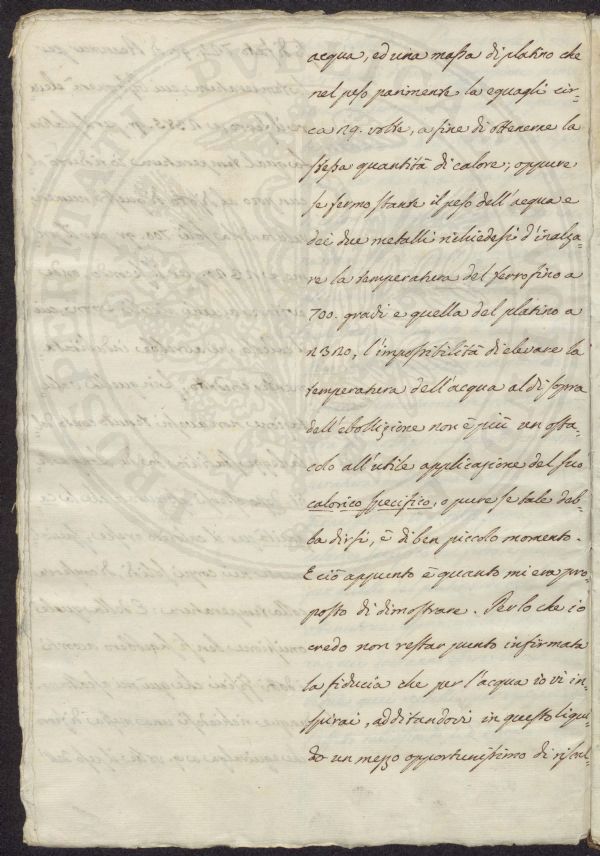 acqua, ed una massa di platino che
nel peso parimente la eguagli cir-
ca 29. volte, a fine di ottenerne la
stessa quantità di calore; oppure
se fermo stante il peso dell'acqua e
dei due metalli richiedesi d'inalza-
re la temperatura del ferro fino a
700. gradi e quella del platino a
2320, l'impossibilità di elevare la
temperatura dell'acqua al di sopra
dell'ebollizione non è più un osta-
colo all'utile applicazione del suo
calorico specifico, o pure se tale deb-
ba dirsi, è di ben piccolo momento.
E ciò appunto è quanto mi era pro-
posto di dimostrare. Per lo che io
credo non restar punto infirmata
la fiducia che per l'acqua io vi in-
spirai, additandovi in questo liqui-
do un mezzo opportunissimo di riscal-